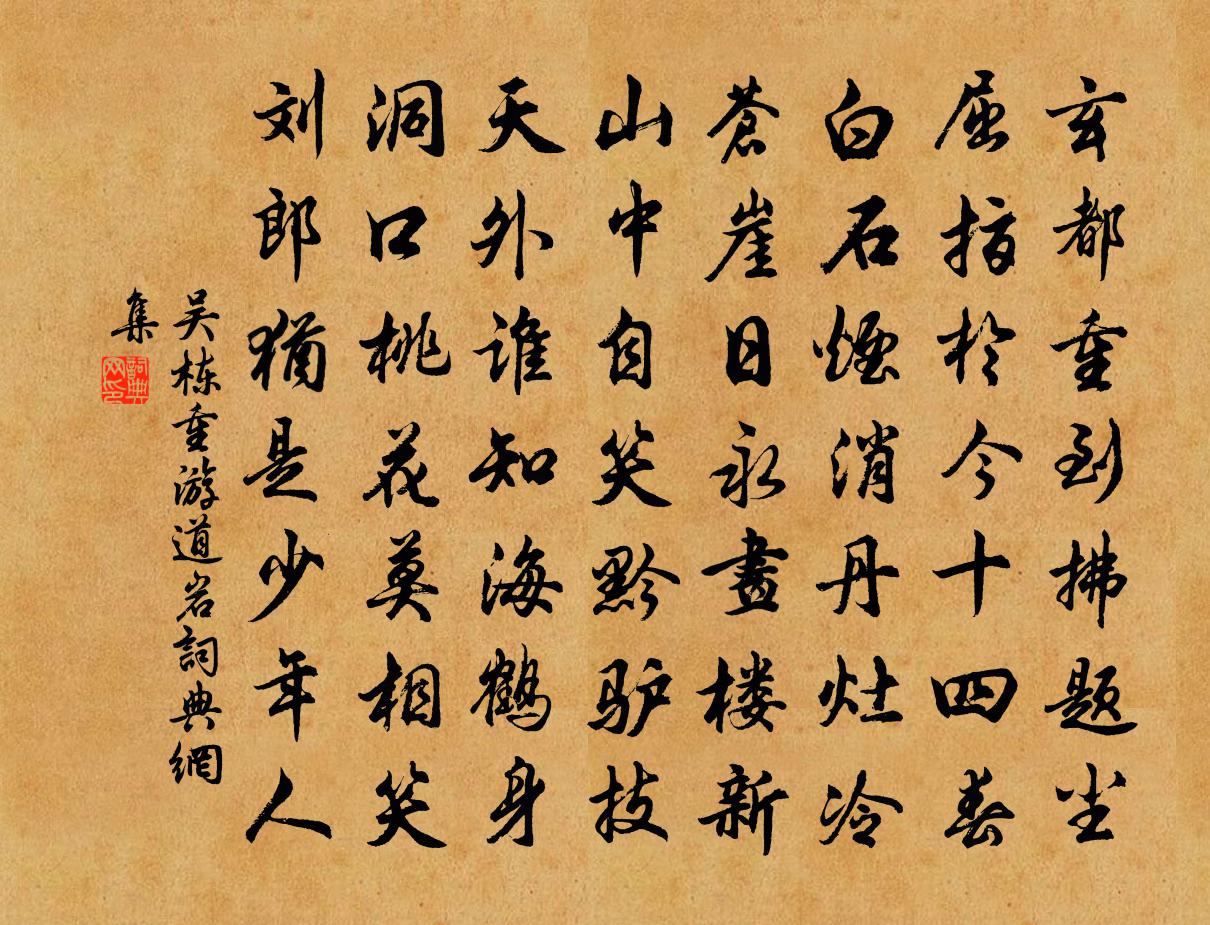 玄都重到拂题尘
屈指於今十四春
白石烟消丹灶冷
蒼崖日永晝楼新
山中自笑黔驴技
天外谁知海鹤身
洞口桃花莫相笑
刘郎犹是少年人
吴栋重游道岩詞典網
集
詞典
网印